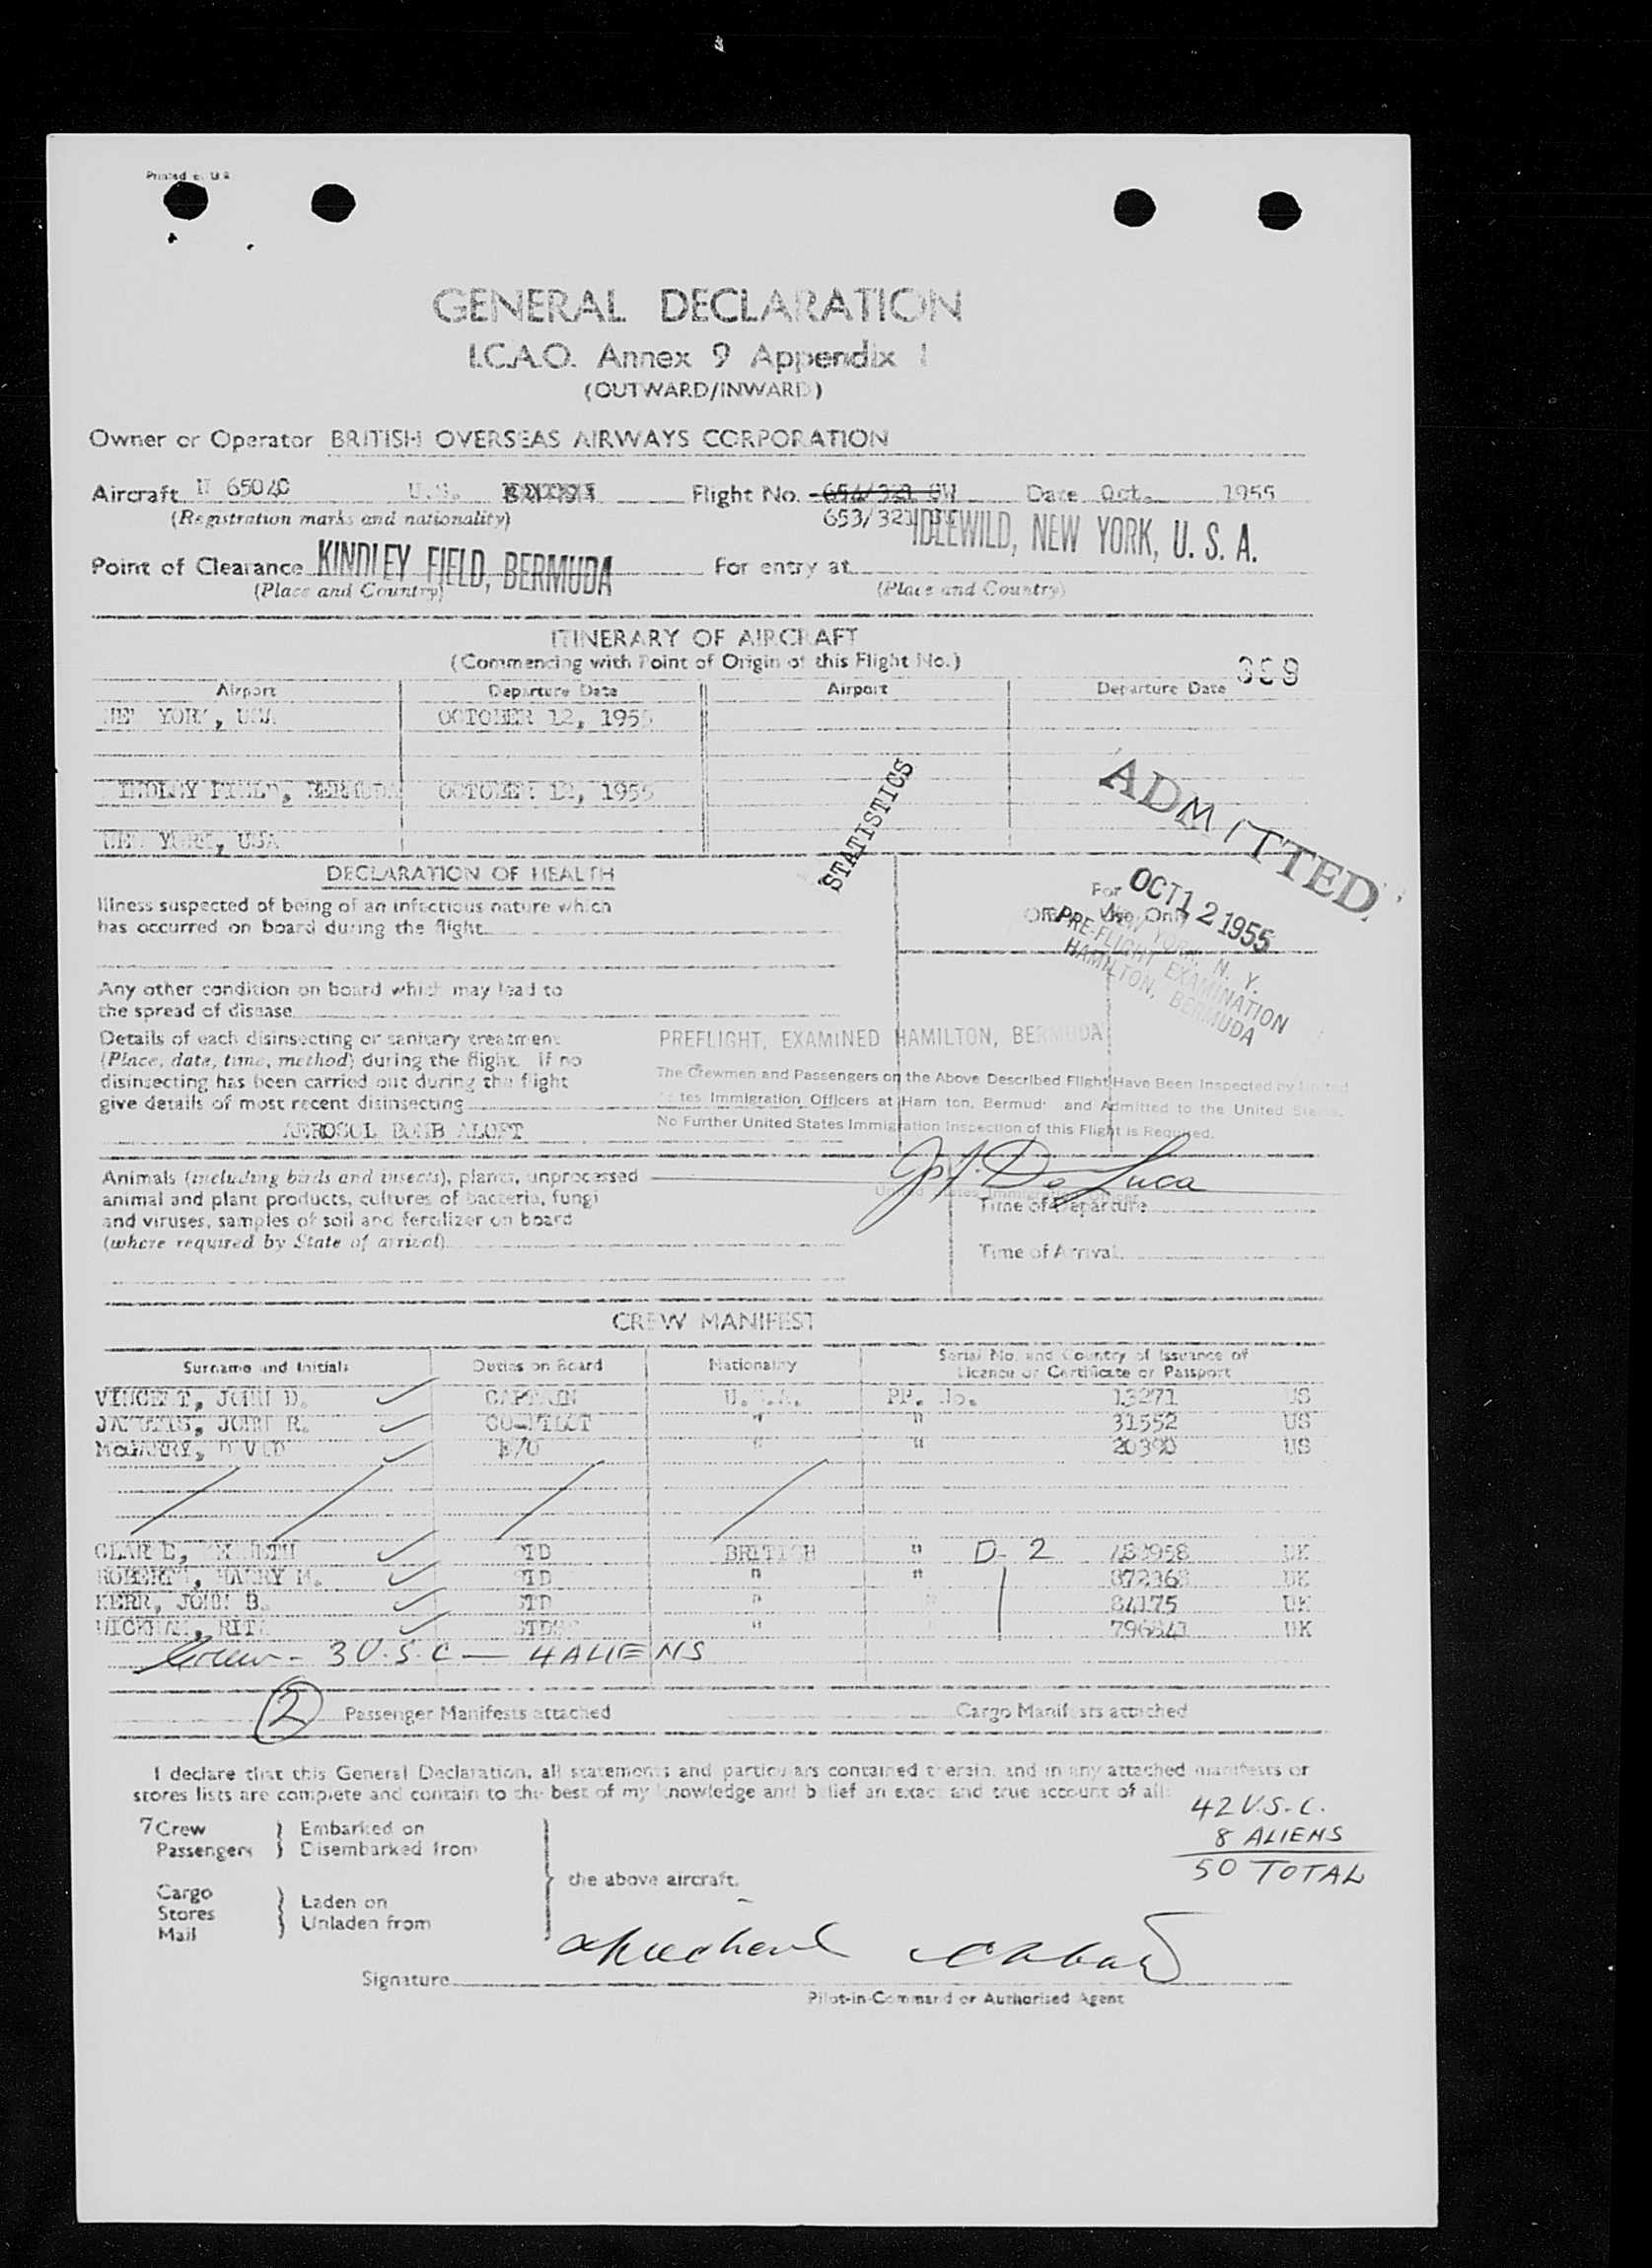 Printed in U.K.
GENERAL DECLARATION
I.C.A.O. Annex 9 Appendix 1
(OUTWARD/INWARD)
Owner or Operator BRITISH OVERSEAS AIRWAYS CORPORATION
Aircraft N 6504C U.S. Flight No. 654/321 BW Date Oct. 1955
(Registration marks and nationality) 653/321
Point of Clearance KINDLEY FIELD, BERMUDA For entry at IDLEWILD, NEW YORK, U. S. A.
(Place and Country) (Place and Country)
ITINERARY OF AIRCRAFT
(Commencing with Point of Origin of this Flight No.) 399
Airport Departure Date Airport Departure Date
NEW YORK, USA OCTOBER 12, 1955
KINDLEY FIELD, BERMUDA OCTOBER 12, 1955
NEW YORK, USA
STATISTICS
ADMITTED
OCT 12 1955
NEW YORK, N. Y.
PRE-FLIGHT EXAMINATION
HAMILTON, BERMUDA
DECLARATION OF HEALTH
For
Official Use Only
Illness suspected of being of an infectious nature which
has occurred on board during the flight
Any other condition on board which may lead to
the spread of disease
Details of each disinsecting or sanitary treatment
(Place, date, time, method) during the flight. If no
disinsecting has been carried out during the flight
give details of most recent disinsecting
AEROSOL BOMB ALOFT
PREFLIGHT, EXAMINED HAMILTON, BERMUDA
The Crewmen and Passengers on the Above Described Flight Have Been Inspected by United
States Immigration Officers at Hamilton, Bermuda and Admitted to the United States.
No Further United States Immigration Inspection of this Flight is Required.
Jos. J. De Luca
United States Immigration Officer
Animals (including birds and insects), plants, unprocessed
animal and plant products, cultures of bacteria, fungi
and viruses, samples of soil and fertilizer on board
(where required by State of arrival)
Time of Departure
Time of Arrival
CREW MANIFEST
Surname and Initials Duties on Board Nationality Serial No. and Country of Issuance of
Licence or Certificate or Passport
VINCENT, JOHN D. CAPTAIN U.S.A. PP. No. 13271 US
JOHN R. CO-PILOT " " 31552 US
McGARRY, DAVID F/O " " 20390 US
CLARKE, KENNETH STD BRITISH " D-2 UK
ROBERTS, HARRY M. STD " " UK
KERR, JOHN B. STD " " 84175 UK
RITA STDS " UK
Crew - 3 U.S.C - 4 ALIENS
2 Passenger Manifests attached Cargo Manifests attached
I declare that this General Declaration, all statements and particulars contained therein, and in any attached manifests or
stores lists are complete and contain to the best of my knowledge and belief an exact and true account of all:
7 Crew Embarked on
Passengers Disembarked from
the above aircraft.
Cargo Laden on
Stores Unladen from
Mail
42 U.S.C.
8 ALIENS
50 TOTAL
Signature
Pilot-in-Command or Authorised Agent